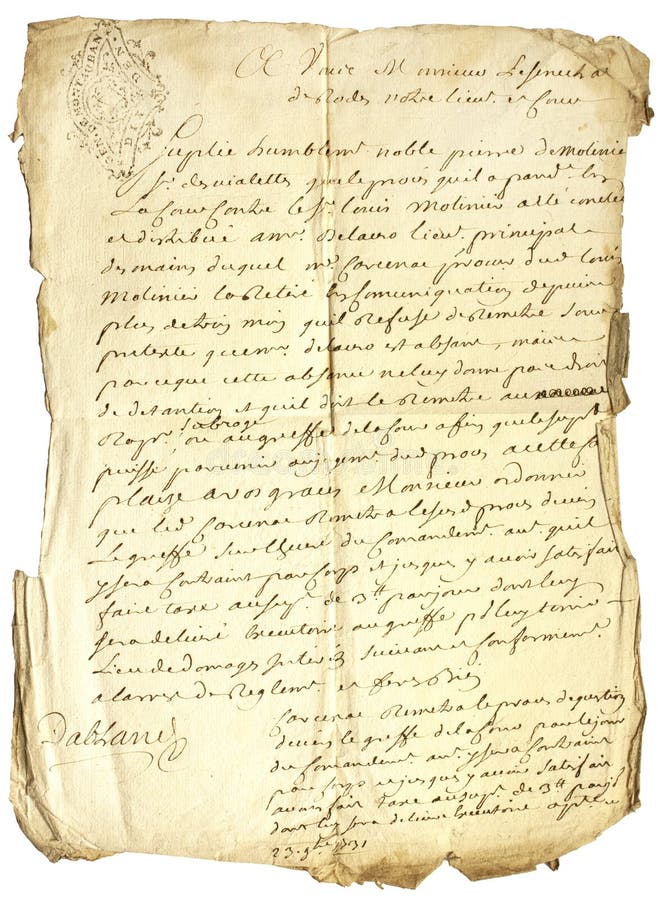 GEN. DE MONTAUBAN
A Vous Monsieur Le senechal
de Rodes votre lieu. et Cour
Suplie humblem. noble pierre de Molinie
Sr. des vialettes que le proces quil a pand.
La Cour Contre le Sr. louis Molinier a esté
et distribué a mr. Delauro lieu. principal
des mains duquel mr. Carcenac procur dud. louis
Molinier la Retiré Comuniquation depuis
plus de trois mois quil Refuse de Remetre sous
pretexte que mr. delauro est absant, mais
parceque cette absance ne luy donne pas droit
de detantion et quil doit le Remetre au
Rapr. subrogé ou au greffe de la Cour afin que le supt
puisse parvenir au jugem. dud. proces a cet
plaize a vos graces Monsieur ordonner
que led. Carcenac Remetra lesd. proces devers
Le greffe sur lheure du Comandem. aut. quil
y sera Contraint par Corps et jusques y avoir satisfait
faire taxe au supt. de 3tt par jour dont luy
sera delivré Executoire au greffe pr luy tenir
Lieu de domages interets suivant et Conformem.
a larrest de Reglem. et feres bien
Carcenac Remetra le proces de question
devers le greffe de la Cour par le jour
du Comandem. aut. y sera Contraint
par Corps et jusques y avoir satisfait
avons fait taxe au supt. de 3tt par jo
dont luy sera delivré Executoire
23. 9bre 1731